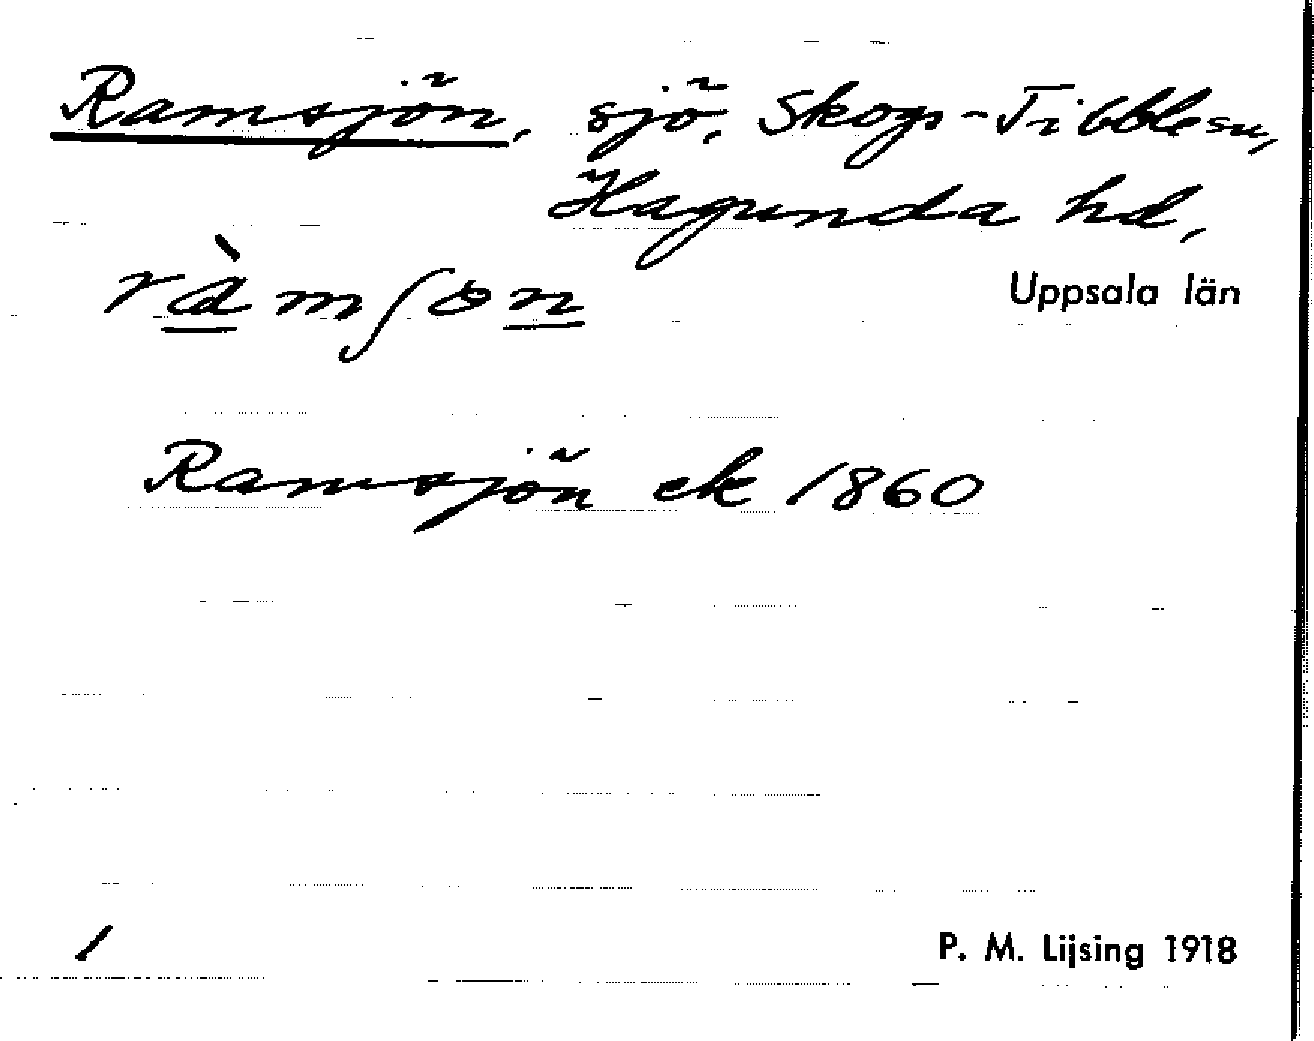 Ramsjön, sjö, Skogs-Tibble sn,
Hagunda hd,
Uppsala län
ràmʃon
Ramsjön ek 1860
1
P. M. Lijsing 1918